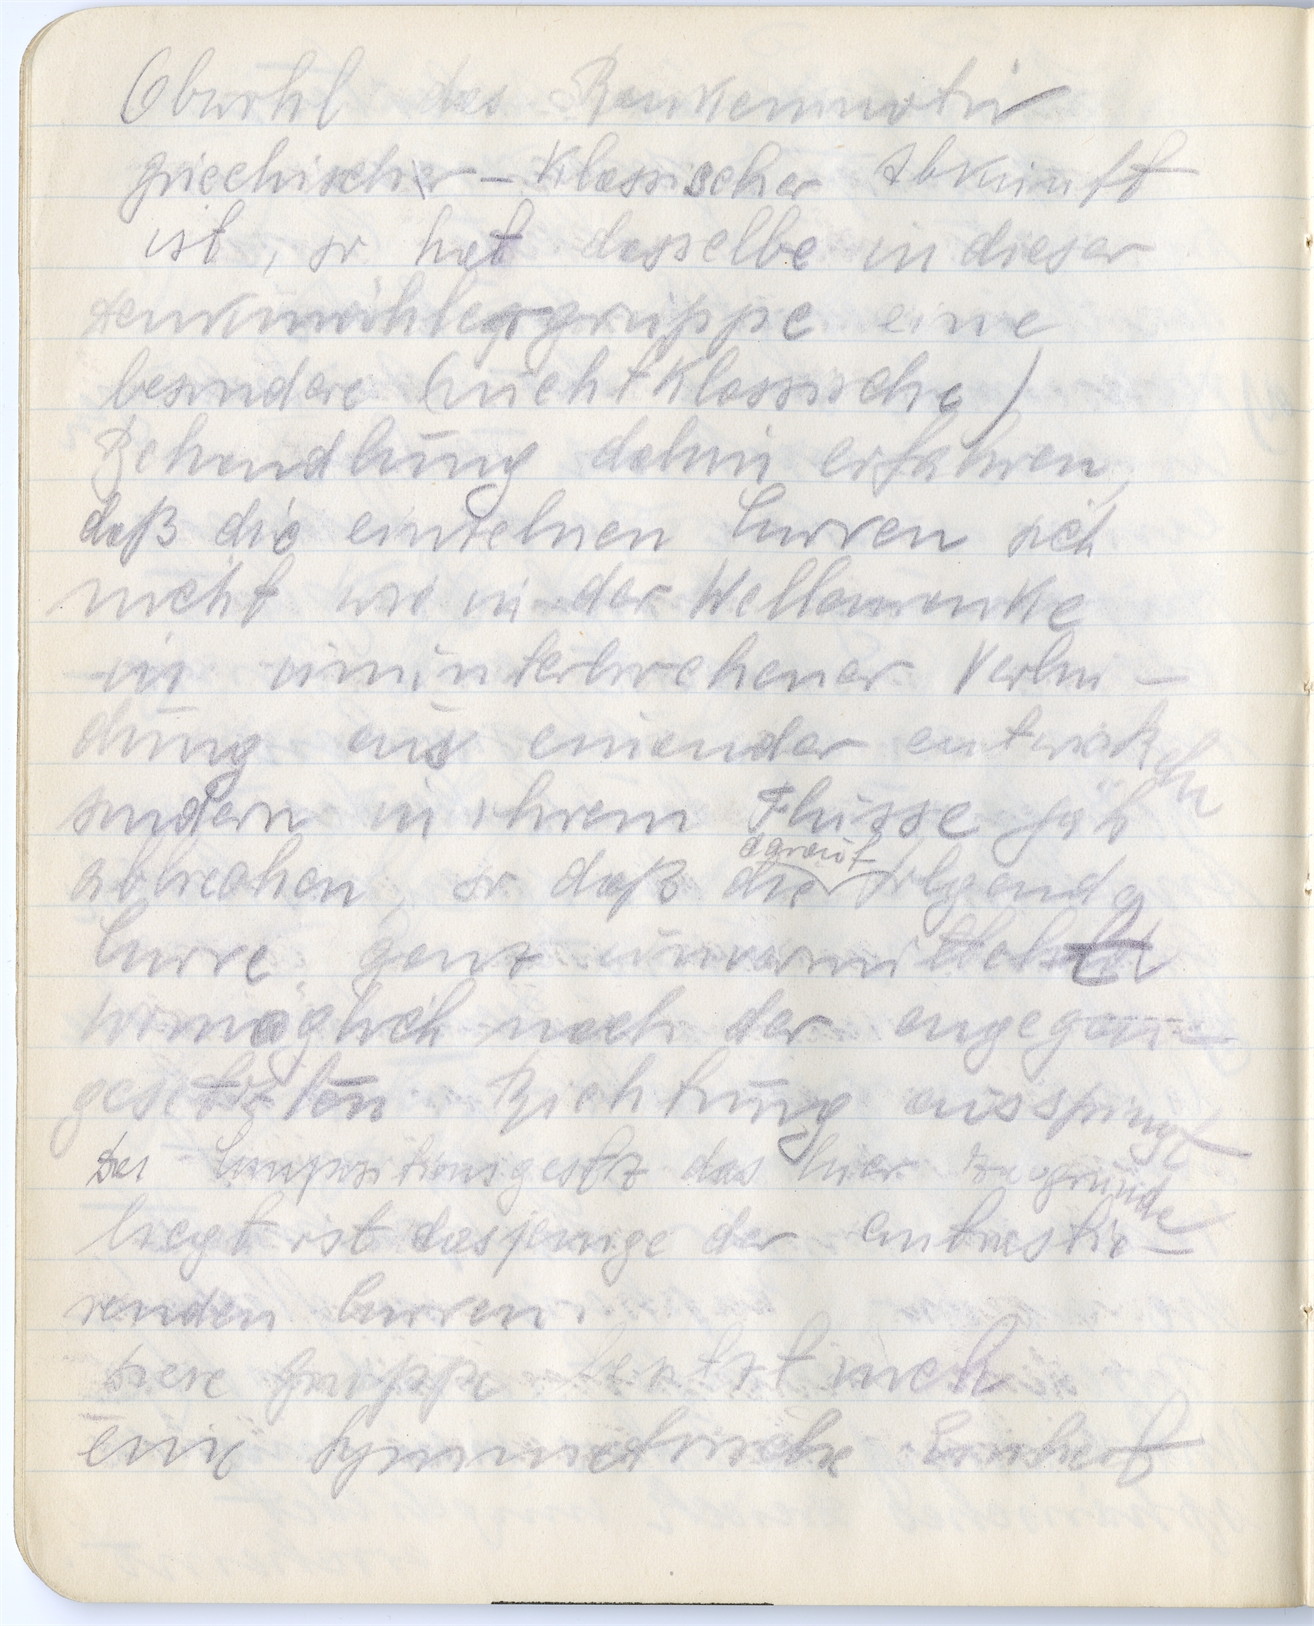 Obwohl das Rankenmotiv
griechischer-klassischer Abkunft
ist, so hat dasselbe in dieser
Denkmählergruppe eine
besondere (nicht klassische)
Behandlung dahin erfahren,
daß die einzelnen Curven sich
nicht wie in der Wellenranke
in ununterbrochener Verbin-
dung aus einander entwickeln
sondern in ihrem Flusse jäh
abbrechen, so daß die darauf folgende
Curve ganz unvermittelt
womöglich nach der
gesetzten Richtung ausspringt
Das Compositionsgesetz das hier zugrunde
liegt ist dasjenige der
renden Curven.
Diese Gruppe besitzt noch
eine symmetrische Einheit